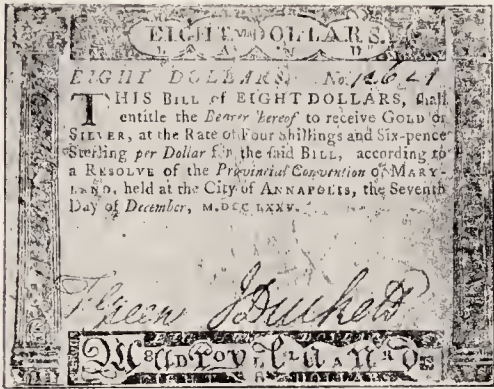 EIGHT DOLLARS.
EIGHT DOLLARS. No.
THIS BILL of EIGHT DOLLARS, shall
entitle the Bearer hereof to receive GOLD or
SILVER, at the Rate of Four Shillings and Six-pence
Sterling per Dollar for the said BILL, according to
a RESOLVE of the Provincial Convention of MARY-
LAND, held at the City of ANNAPOLIS, the Seventh
Day of December, M.DCC LXXV.
T Green J Duckett